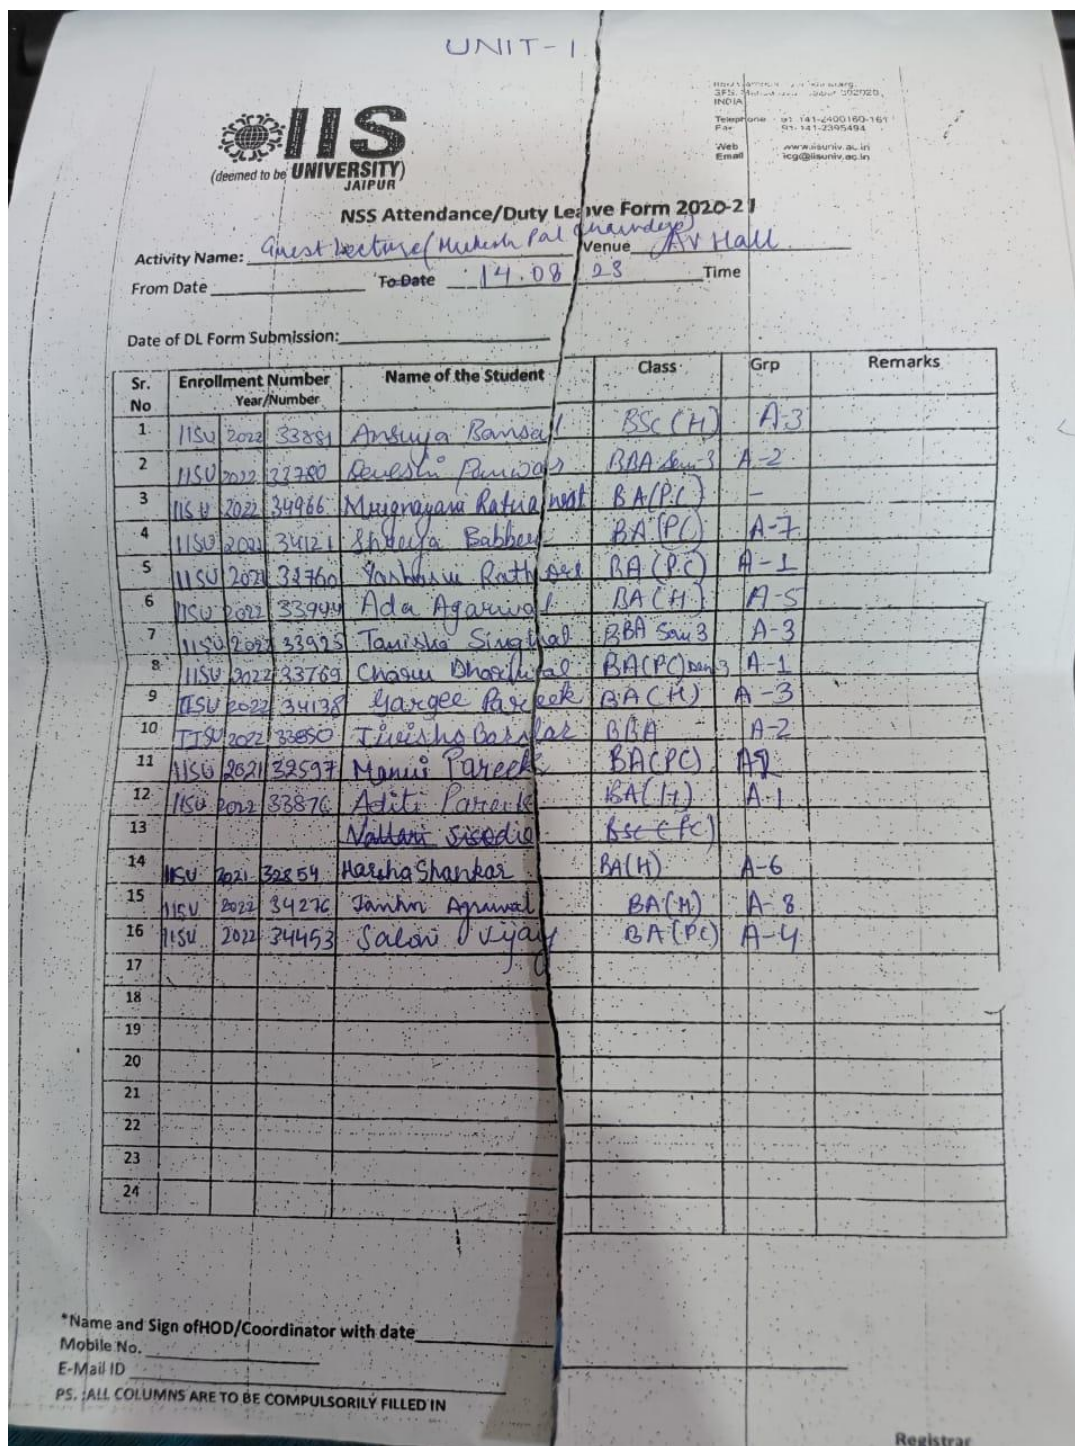 UNIT-1
INDIA
Telephone : 91-141-2400160-161
Fax 91-141-2395494
Web www.iisuniv.ac.in
Email icg@iisuniv.ac.in
IIS
(deemed to be UNIVERSITY)
JAIPUR
NSS Attendance/Duty Leave Form 2020-21
Activity Name: Guest Lecture (Mukesh Pal Venue AV Hall
From Date To Date 14.08.23 Time
Date of DL Form Submission:
Sr. No Enrollment Number Year/Number Name of the Student Class Grp Remarks
1 IISU 2022 33881 Bansal BSc (H) A-3
2 IISU 2022 33780 Panwar BBA Sem-3 A-2
3 IISU 2022 34966 BA(P.C) -
4 IISU 2021 34121 Shreeya Babber BA (PC) A-7
5 IISU 2021 32760 Rathore BA (P.C) A-1
6 IISU 2022 33944 Ada Agarwal BA (H) A-5
7 IISU 2022 33925 Tanisha Singhal BBA Sem 3 A-3
8 IISU 2022 33769 BA(PC) Sem 3 A-1
9 IISU 2022 34138 Gargee Pareek BA (H) A-3
10 IISU 2022 33850 BBA A-2
11 IISU 2021 32597 Pareek BA(PC)
12 IISU 2022 33876 Aditi Pareek BA(H) A-1
13 Vallari Sisodia BSc (PC)
14 IISU 2021 32854 Harsha Shankar BA(H) A-6
15 IISU 2022 34276 Agrawal BA(H) A-8
16 IISU 2022 34453 Saloni Vijay BA (PC) A-4
17
18
19
20
21
22
23
24
*Name and Sign ofHOD/Coordinator with date
Mobile No.
E-Mail ID
PS. :ALL COLUMNS ARE TO BE COMPULSORILY FILLED IN
Registrar